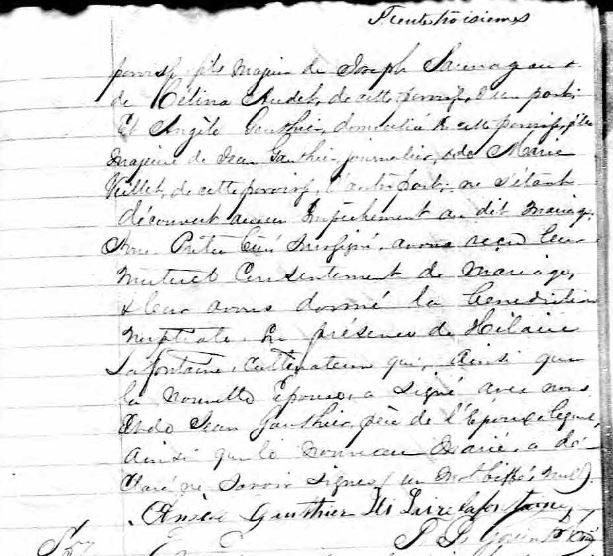 Trentetroisièmes
paroisse, fils majeur de Joseph &
de Célina Audet, de cette paroisse, d'une part;
Et Angèle Gauthier, domiciliée de cette paroisse, fille
majeure de Jean Gauthier, journalier, & de Marie
Veillet, de cette paroisse, d'autre part; ne s'étant
découvert aucun empêchement au dit mariage;
Nous Prêtre Curé soussigné, avons reçu leur
mutuel consentement de mariage,
& leur avons donné la bénédiction
nuptiale. En présence de Hilaire
Lafontaine, cultivateur qui, ainsi que
la nouvelle Epouse, a signé avec nous
& de Jean Gauthier, père de l'Epouse lequel,
ainsi que le nouveau Marié, a dé
claré ne savoir signer (un mot biffé nul).
Angèle Gauthier Lafontaine